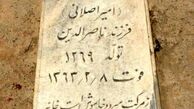 امیر اصلانی
فرزند ناصرالدین
تولد ۱۲۶۹
فوت ۱۳۶۳/۲/۸